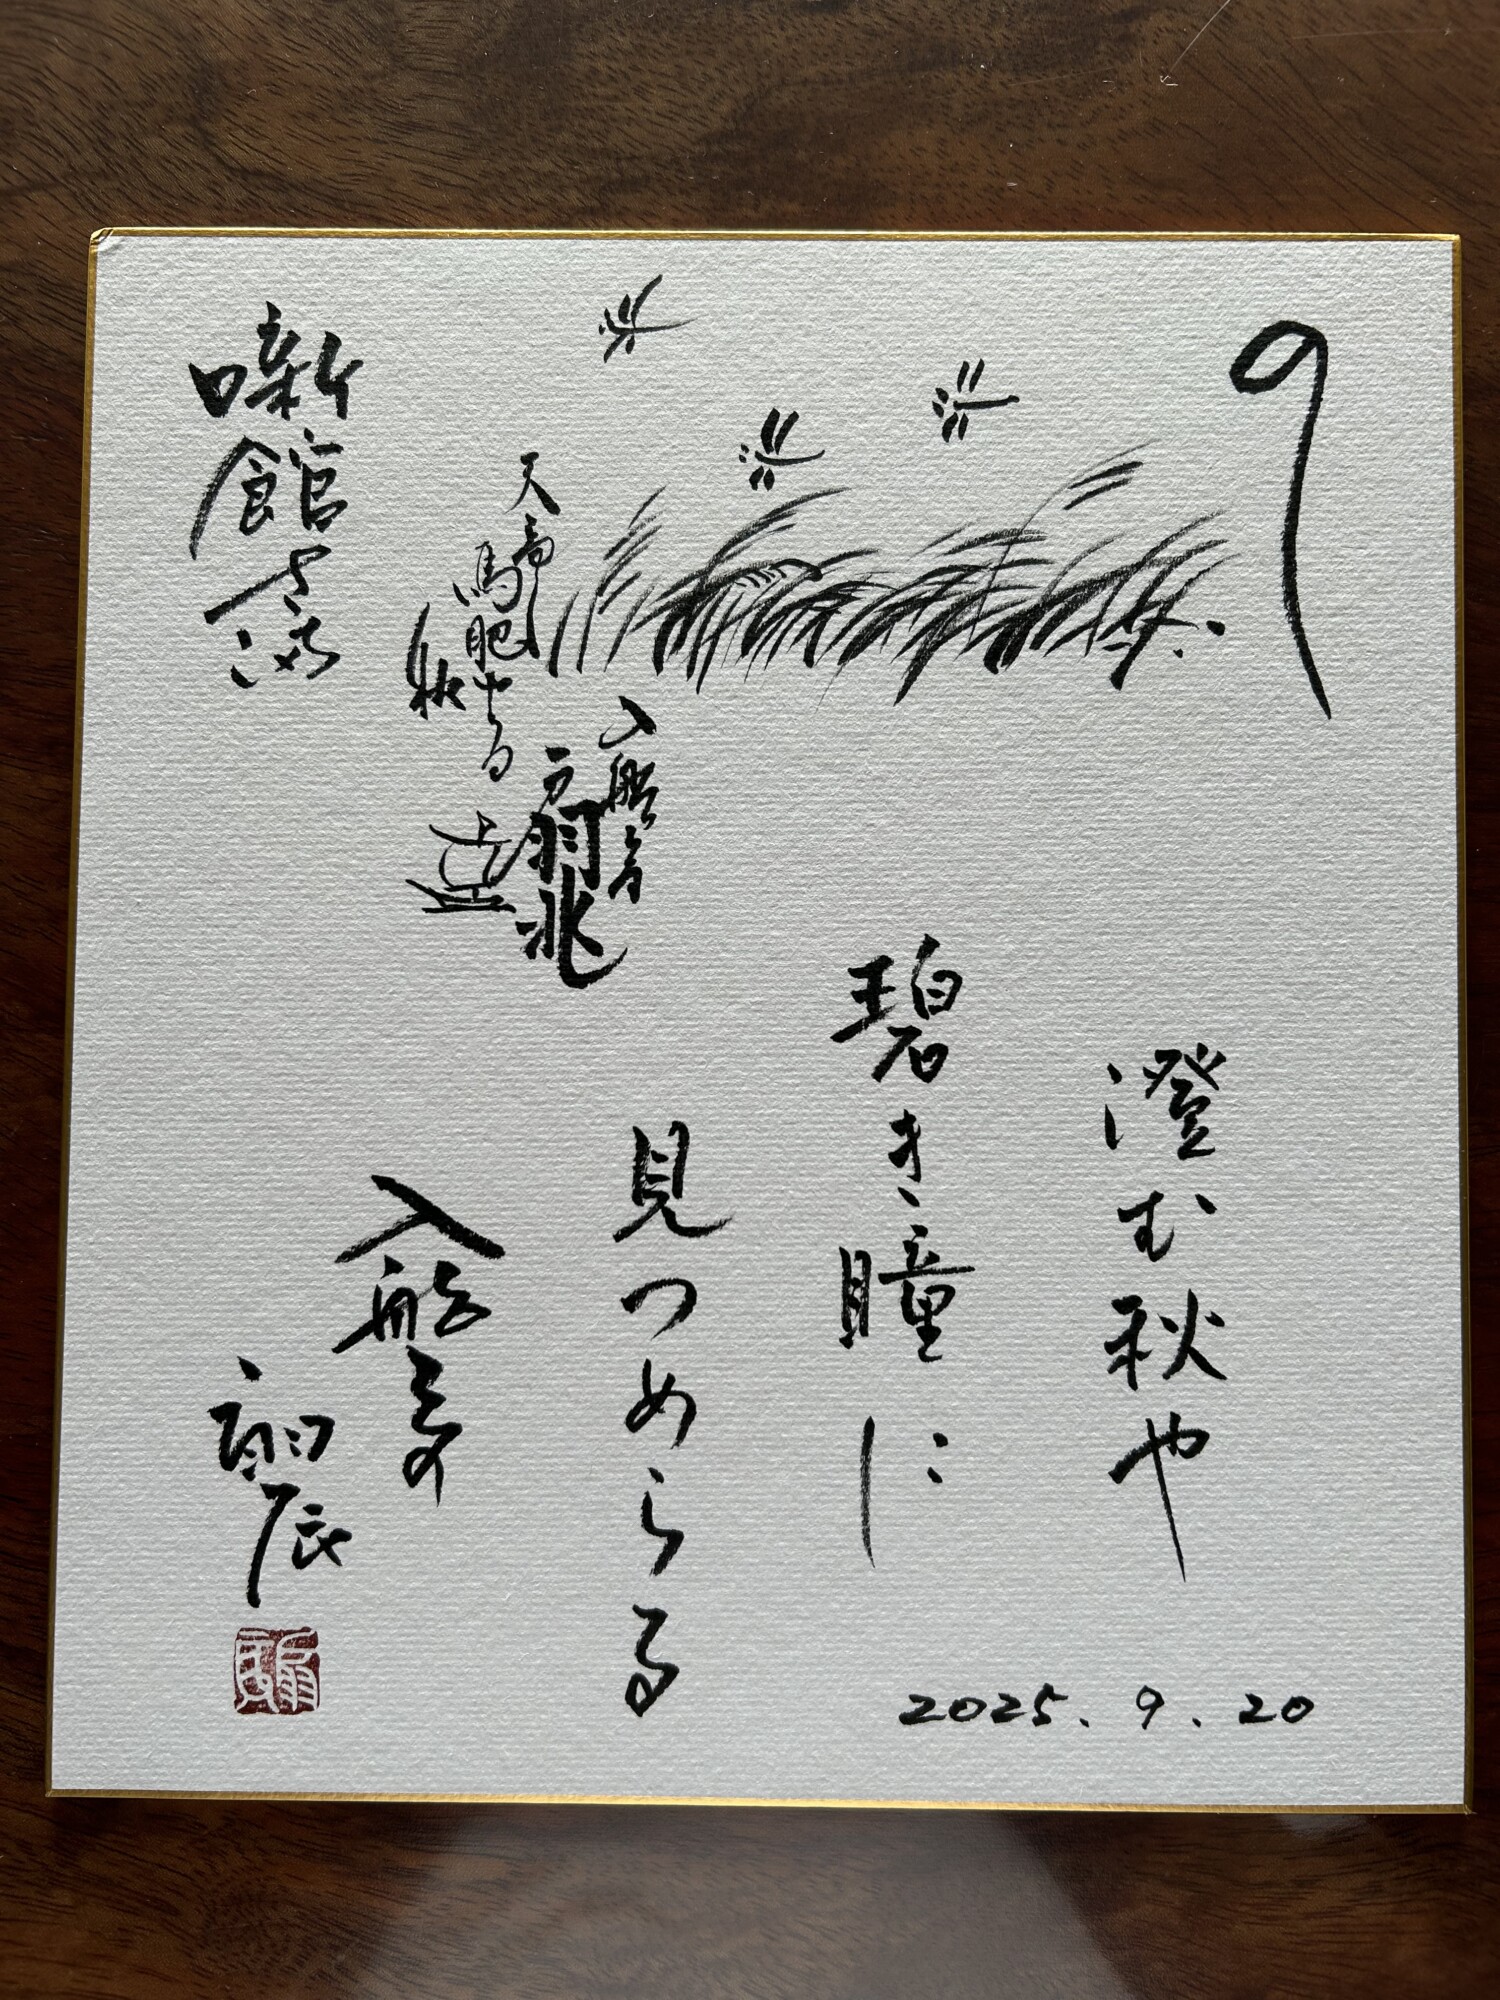 澄む秋や
碧き瞳に
見つめらる
2025.9.20
入船亭
扇辰
入船亭
扇兆
天高く
馬肥ゆる
秋
噺館さん江